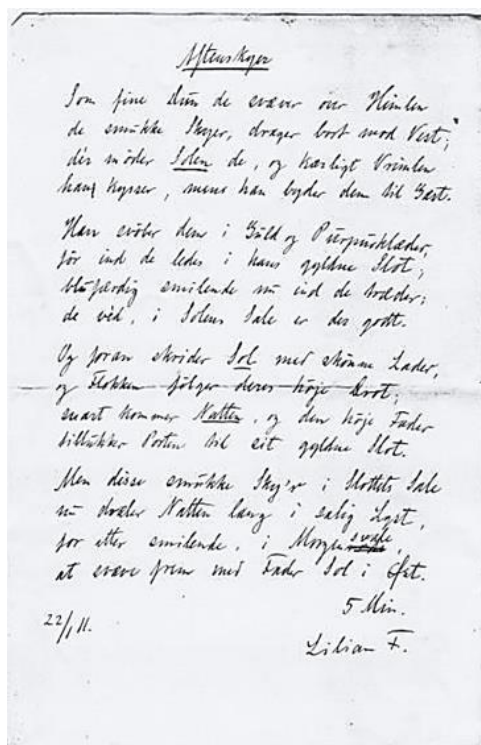 Aftenskyer
Som fine Dun de svæver over Himlen
de smukke Skyer, drager bort mod Vest;
dér möder Solen de, og kærligt Vrimlen
hans kysser, mens han byder dem til Gæst.
Han svöber dem i Guld og Purpurklæder,
för ind de ledes i hans gyldne Slot,
blufærdig smilende nu ind de træder;
de véd, i Solens Sale er der godt.
Og foran skrider Sol med skönne Lader,
og Flokken fölger deres höje Drot;
snart kommer Natten, og den höje Fader
tillukker Porten til sit gyldne Slot.
Men disse smukke Sky'r i Slottets Sale
nu dvæler Natten lang i salig Lyst,
for etter smilende, i Morgen svale,
at svæve frem med Fader Sol i Øst.
5 Min.
22/1 11.
Lilian F.